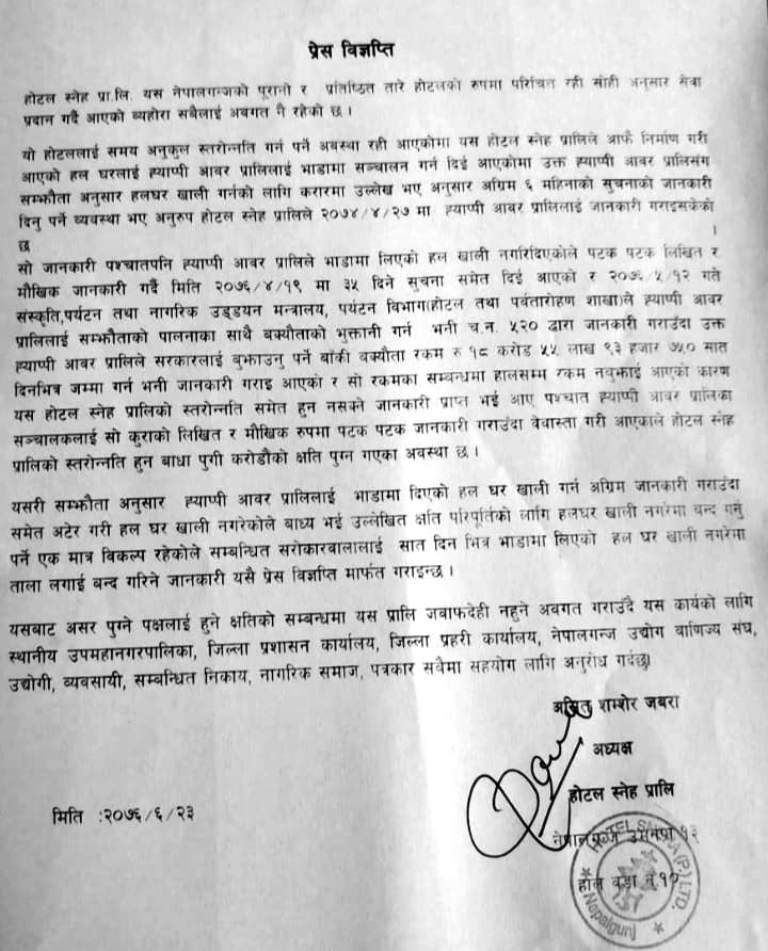 प्रेस विज्ञप्ति
होटल स्नेह प्रा.लि. यस नेपालगन्जको पूरानो र प्रतिष्ठित तारे होटलको रुपमा परिचित रही सोही अनुसार सेवा
प्रदान गर्दै आएको व्यहोरा सबैलाई अवगत नै रहेको छ ।
यो होटललाई समय अनुकुल स्तरोन्नति गर्न पर्ने अवस्था रही आएकोमा यस होटल स्नेह प्रालिले आफै निर्माण गरी
आएको हल घरलाई ह्याप्पी आवर प्रालिलाई भाडामा सञ्चालन गर्न दिई आएकोमा उक्त ह्याप्पी आवर प्रालिसंग
सम्झौता अनुसार हलघर खाली गर्नको लागि करारमा उल्लेख भए अनुसार अग्रिम ६ महिनाको सुचनाको जानकारी
दिनु पर्ने व्यवस्था भए अनुरुप होटल स्नेह प्रालिले २०७४/४/२७ मा ह्याप्पी आवर प्रालिलाई जानकारी गराइसकेको
छ ।
सो जानकारी पश्चातपनि ह्याप्पी आवर प्रालिले भाडामा लिएको हल खाली नगरिदिएकोले पटक पटक लिखित र
मौखिक जानकारी गर्दै मिति २०७६/४/१९ मा ३५ दिने सुचना समेत दिई आएको र २०७६/५/१२ गते
संस्कृति,पर्यटन तथा नागरिक उड्डयन मन्त्रालय, पर्यटन विभाग(होटल तथा पर्वतारोहण शाखा)ले ह्याप्पी आवर
प्रालिलाई सम्झौताको पालनाका साथै बक्यौताको भुक्तानी गर्न भनी च.न. ५२० द्वारा जानकारी गराउँदा उक्त
ह्याप्पी आवर प्रालिले सरकारलाई बुझाउनु पर्ने बाँकी बक्यौता रकम रु १८ करोड ५५ लाख ९३ हजार ७५० सात
दिनभित्र जम्मा गर्न भनी जानकारी गराइ आएको र सो रकमका सम्बन्धमा हालसम्म रकम नबुझाई आएको कारण
यस होटल स्नेह प्रालिको स्तरोन्नति समेत हुन नसक्ने जानकारी प्राप्त भई आए पश्चात ह्याप्पी आवर प्रालिका
सञ्चालकलाई सो कुराको लिखित र मौखिक रुपमा पटक पटक जानकारी गराउँदा वेवास्ता गरी आएकाले होटल स्नेह
प्रालिको स्तरोन्नति हुन बाधा पुगी करोडौको क्षति पुग्न गएका अवस्था छ ।
यसरी सम्झौता अनुसार ह्याप्पी आवर प्रालिलाई भाडामा दिएको हल घर खाली गर्न अग्रिम जानकारी गराउँदा
समेत अटेर गरी हल घर खाली नगरेकोले बाध्य भई उल्लेखित क्षति परिपुर्तिको लागि हलघर खाली नगरेमा बन्द गर्नु
पर्ने एक मात्र विकल्प रहेकोले सम्बन्धित सरोकारवालालाई सात दिन भित्र भाडामा लिएको हल घर खाली नगरेमा
ताला लगाई बन्द गरिने जानकारी यसै प्रेस विज्ञप्ति मार्फत गराइन्छ ।
यसबाट असर पुग्ने पक्षलाई हुने क्षतिको सम्बन्धमा यस प्रालि जवाफदेही नहुने अवगत गराउँदै यस कार्यको लागि
स्थानीय उपमहानगरपालिका, जिल्ला प्रशासन कार्यालय, जिल्ला प्रहरी कार्यालय, नेपालगन्ज उद्योग वाणिज्य संघ,
उद्योगी, व्यबसायी, सम्बन्धित निकाय, नागरिक समाज, पत्रकार सबैमा सहयोग लागि अनुरोध गर्दछु।
शम्शेर जबरा
अध्यक्ष
होटल स्नेह प्रालि
मिति :२०७६/६/२३
नेपालगन्ज
Nepalgunj